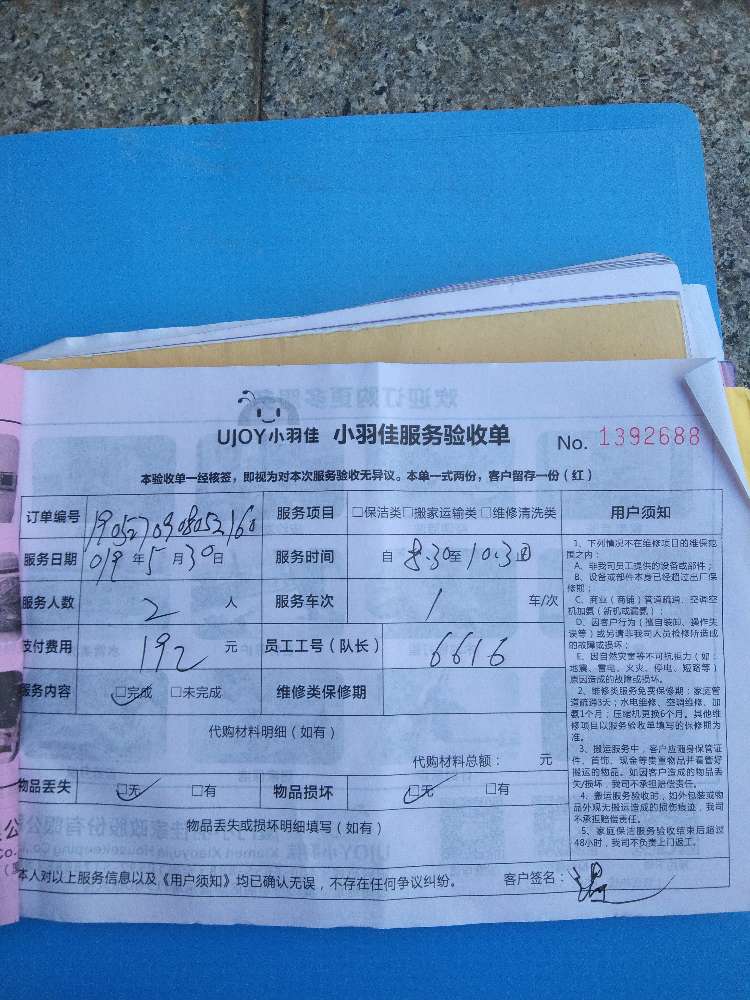 UJOY小羽佳 小羽佳服务验收单 No. 1392688
本验收单一经核签，即视为对本次服务验收无异议。本单一式两份，客户留存一份（红）
订单编号 1905270908052160 服务项目 □保洁类□搬家运输类□维修清洗类
服务日期 019年5月30日 服务时间 自8.30至10.30止
服务人数 2 人 服务车次 1 车/次
支付费用 192 元 员工工号（队长） 6616
服务内容 □完成 □未完成 维修类保修期
代购材料明细（如有）
代购材料总额： 元
物品丢失 □无 □有 物品损坏 □无 □有
物品丢失或损坏明细填写（如有）
本人对以上服务信息以及《用户须知》均已确认无误，不存在任何争议纠纷。 客户签名：
用户须知
1、下列情况不在维修项目的维保范
围之内：
A、非我司员工提供的设备或部件；
B、设备或部件本身已经超过出厂保
修期；
C、商业（商铺）管道疏通、空调空
机加氨（新机或漏氨）；
D、因客户行为（擅自装卸、操作失
误等）或另请非我司人员检修所造成
的故障或损坏；
E、因自然灾害等不可抗拒力（如：
地震、雷电、火灾、停电、短路等）
原因造成的故障或损坏。
2、维修类服务免费保修期：家庭管
道疏通3天；水电维修、空调维修、加
氨1个月；压缩机更换6个月。其他维
修项目以服务验收单填写的保修期为
准。
3、搬运服务中，客户应随身保管证
件、首饰、现金等贵重物品并看管好
搬运的物品。如因客户造成的物品丢
失/损坏，我司不承担赔偿责任。
4、搬运服务验收时，如外包装或物
品外观无搬运造成的损伤痕迹，我司
不承担赔偿责任。
5、家庭保洁服务验收结束后超过
48小时，我司不负责上门返工。